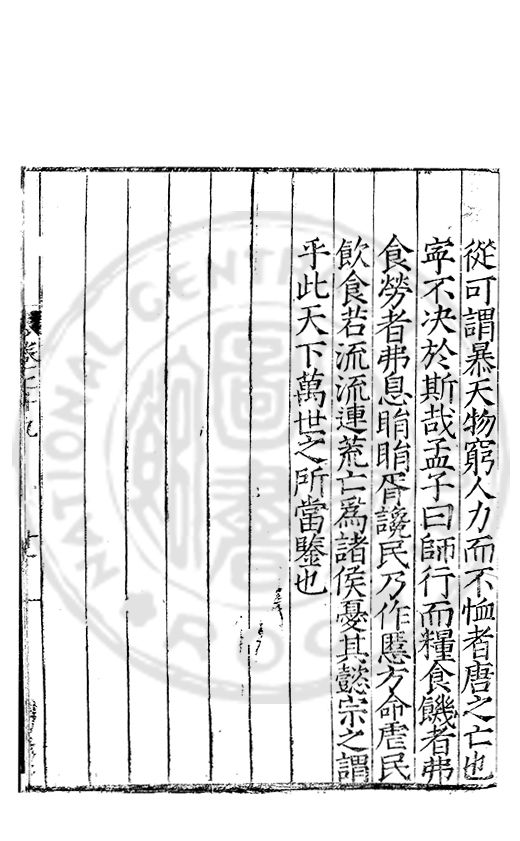 從可謂暴天物窮人力而不恤者唐之亡也
寧不决於斯哉孟子曰師行而糧食饑者弗
食勞者弗息睊睊胥讒民乃作慝方命虐民
飲食若流流連荒亡爲諸侯憂其懿宗之謂
乎此天下萬世之所當鑒也